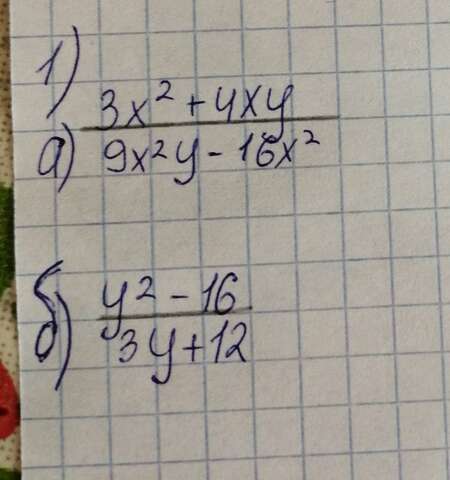 1)
а) 3x² + 4xy
9x²y - 16x²
б) y² - 16
3y + 12